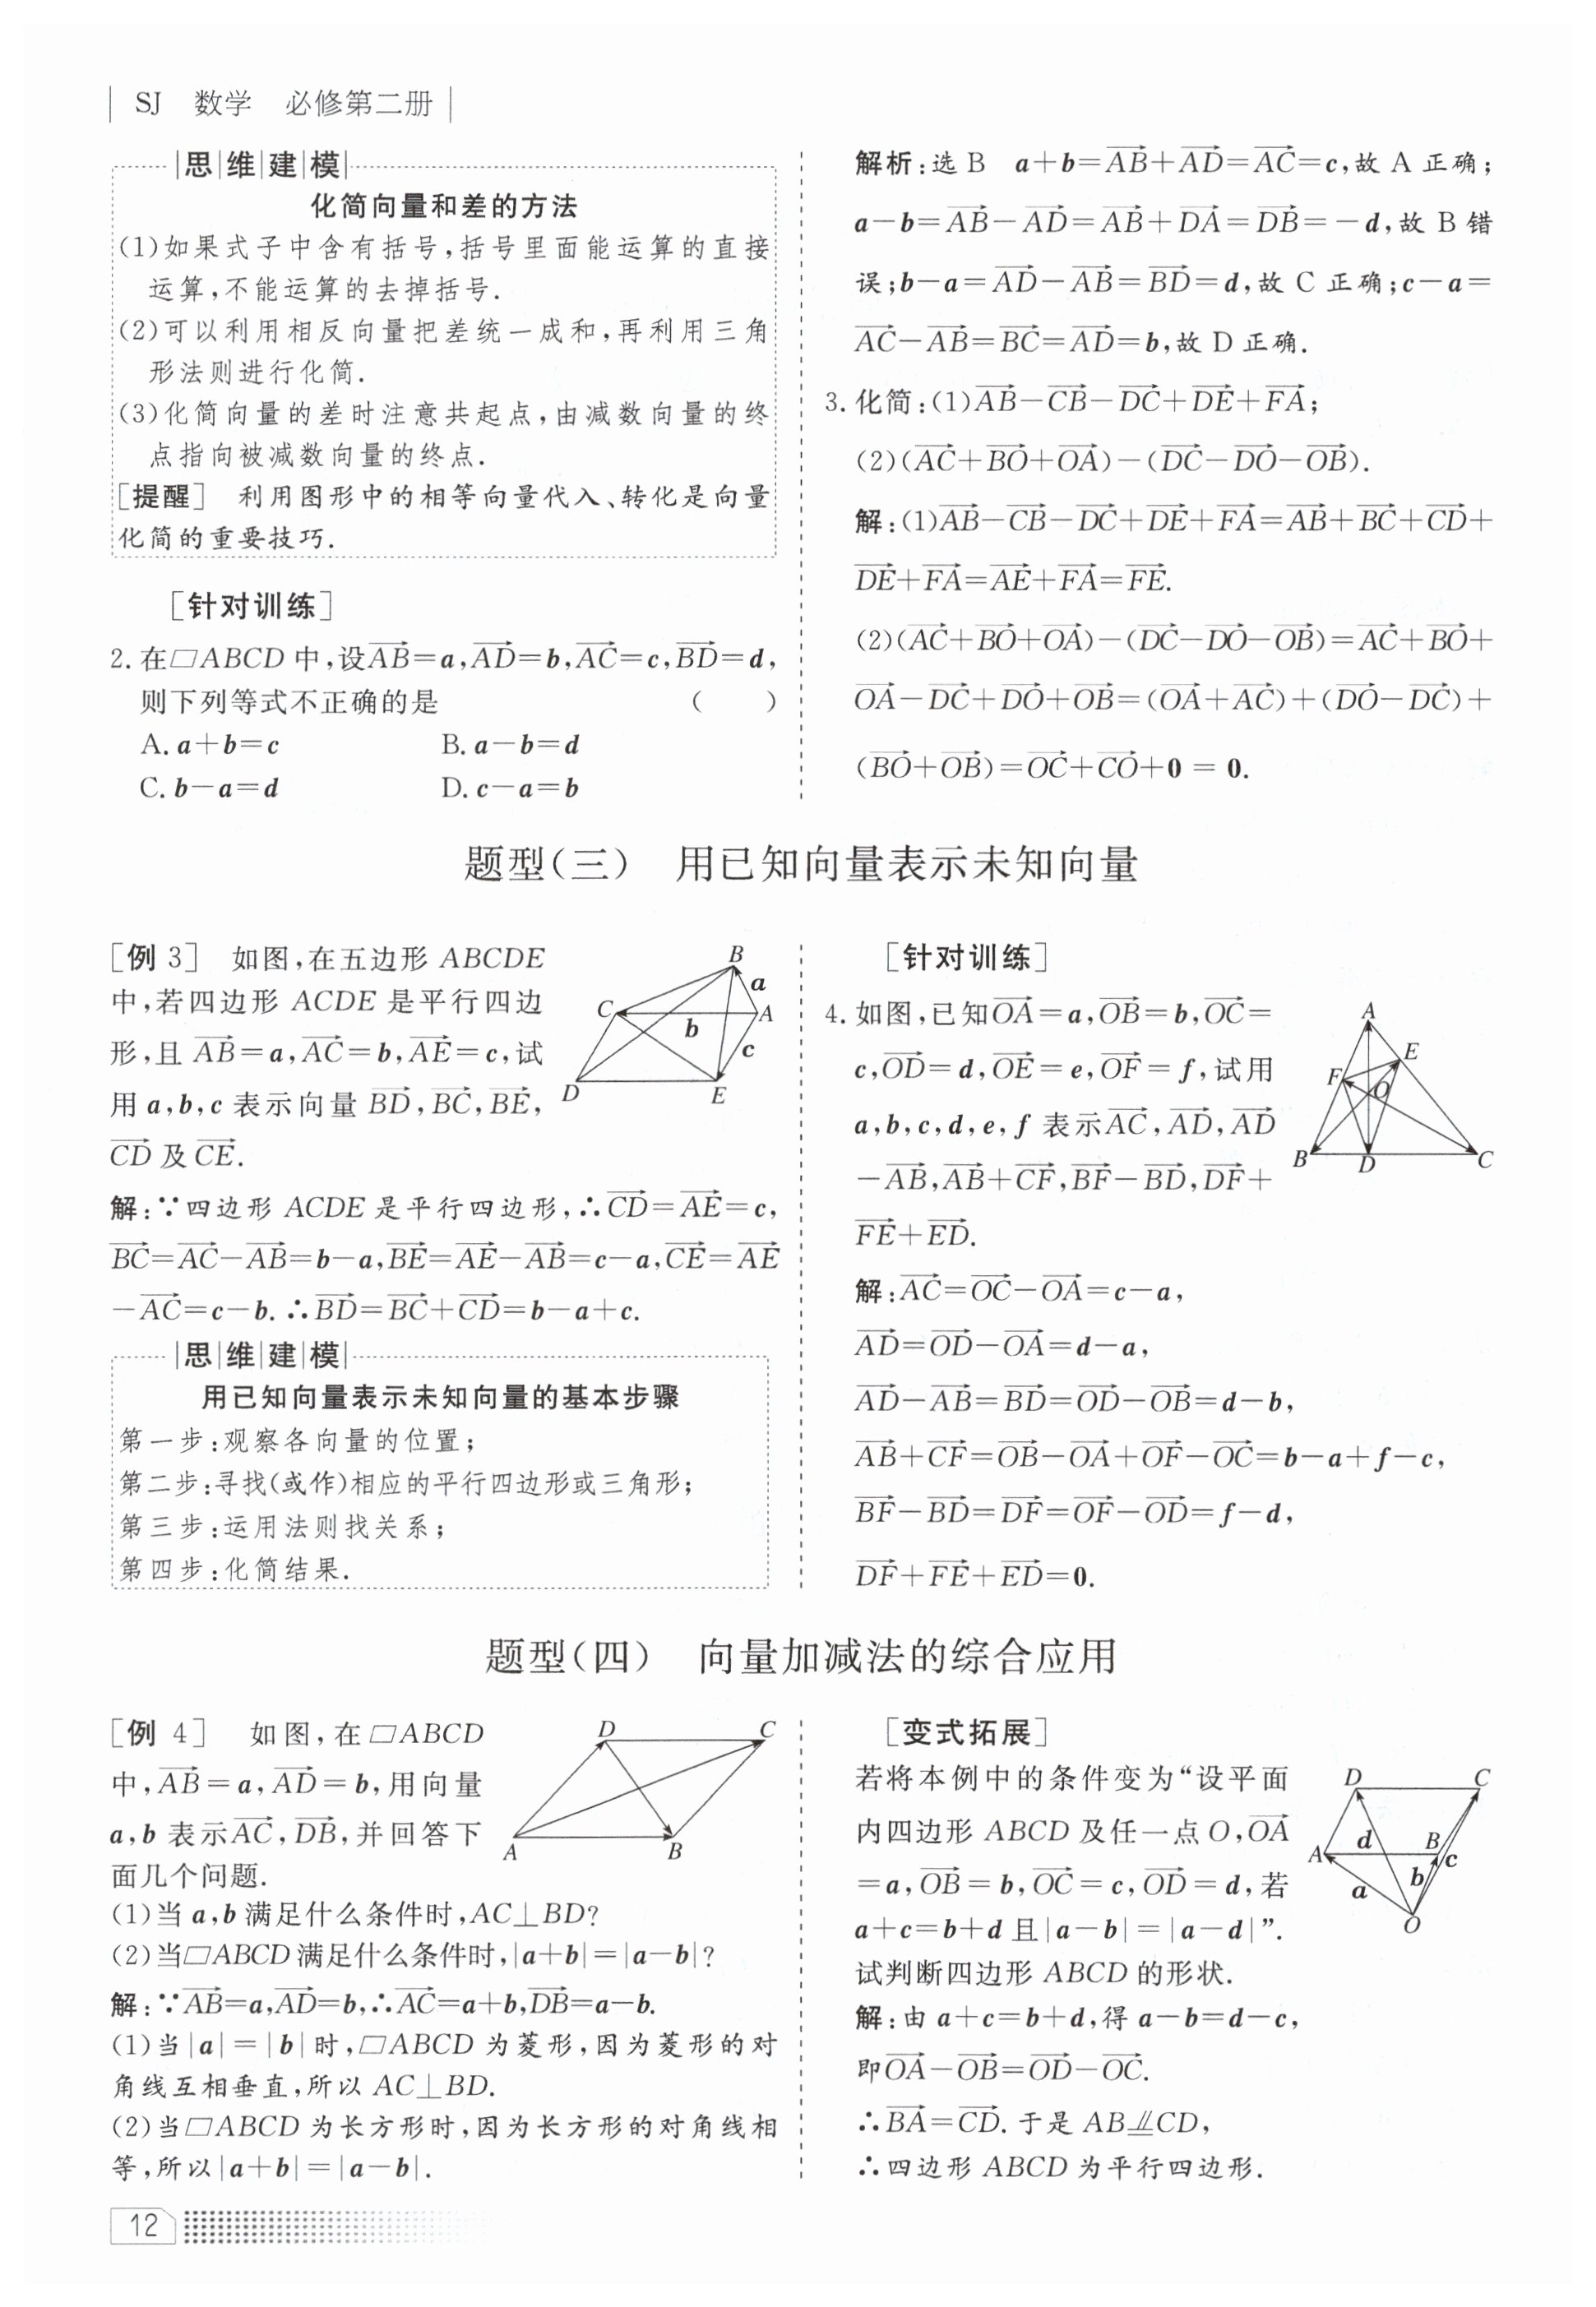 SJ 数学 必修第二册
思维建模
化简向量和差的方法
(1)如果式子中含有括号,括号里面能运算的直接
运算,不能运算的去掉括号.
(2)可以利用相反向量把差统一成和,再利用三角
形法则进行化简.
(3)化简向量的差时注意共起点,由减数向量的终
点指向被减数向量的终点.
[提醒] 利用图形中的相等向量代入、转化是向量
化简的重要技巧.
[针对训练]
2. 在▱ABCD 中,设$\overrightarrow{AB}$=a,$\overrightarrow{AD}$=b,$\overrightarrow{AC}$=c,$\overrightarrow{BD}$=d,
则下列等式不正确的是 ( )
A. a+b=c B. a-b=d
C. b-a=d D. c-a=b
解析:选 B a+b=$\overrightarrow{AB}$+$\overrightarrow{AD}$=$\overrightarrow{AC}$=c,故 A 正确;
a-b=$\overrightarrow{AB}$-$\overrightarrow{AD}$=$\overrightarrow{AB}$+$\overrightarrow{DA}$=$\overrightarrow{DB}$=-d,故 B 错
误;b-a=$\overrightarrow{AD}$-$\overrightarrow{AB}$=$\overrightarrow{BD}$=d,故 C 正确;c-a=
$\overrightarrow{AC}$-$\overrightarrow{AB}$=$\overrightarrow{BC}$=$\overrightarrow{AD}$=b,故 D 正确.
3. 化简:(1)$\overrightarrow{AB}$-$\overrightarrow{CB}$-$\overrightarrow{DC}$+$\overrightarrow{DE}$+$\overrightarrow{FA}$;
(2)($\overrightarrow{AC}$+$\overrightarrow{BO}$+$\overrightarrow{OA}$)-($\overrightarrow{DC}$-$\overrightarrow{DO}$-$\overrightarrow{OB}$).
解:(1)$\overrightarrow{AB}$-$\overrightarrow{CB}$-$\overrightarrow{DC}$+$\overrightarrow{DE}$+$\overrightarrow{FA}$=$\overrightarrow{AB}$+$\overrightarrow{BC}$+$\overrightarrow{CD}$+
$\overrightarrow{DE}$+$\overrightarrow{FA}$=$\overrightarrow{AE}$+$\overrightarrow{FA}$=$\overrightarrow{FE}$.
(2)($\overrightarrow{AC}$+$\overrightarrow{BO}$+$\overrightarrow{OA}$)-($\overrightarrow{DC}$-$\overrightarrow{DO}$-$\overrightarrow{OB}$)=$\overrightarrow{AC}$+$\overrightarrow{BO}$+
$\overrightarrow{OA}$-$\overrightarrow{DC}$+$\overrightarrow{DO}$+$\overrightarrow{OB}$=($\overrightarrow{OA}$+$\overrightarrow{AC}$)+($\overrightarrow{DO}$-$\overrightarrow{DC}$)+
($\overrightarrow{BO}$+$\overrightarrow{OB}$)=$\overrightarrow{OC}$+$\overrightarrow{CO}$+0 = 0.
题型(三) 用已知向量表示未知向量
[例 3] 如图,在五边形 ABCDE
中,若四边形 ACDE 是平行四边
形,且 $\overrightarrow{AB}$=a,$\overrightarrow{AC}$=b,$\overrightarrow{AE}$=c,试
用 a,b,c 表示向量 $\overrightarrow{BD}$,$\overrightarrow{BC}$,$\overrightarrow{BE}$,
$\overrightarrow{CD}$ 及 $\overrightarrow{CE}$.
B
a
C
A
b
c
D
E
解:∵四边形 ACDE 是平行四边形,∴$\overrightarrow{CD}$=$\overrightarrow{AE}$=c,
$\overrightarrow{BC}$=$\overrightarrow{AC}$-$\overrightarrow{AB}$=b-a,$\overrightarrow{BE}$=$\overrightarrow{AE}$-$\overrightarrow{AB}$=c-a,$\overrightarrow{CE}$=$\overrightarrow{AE}$
-$\overrightarrow{AC}$=c-b. ∴$\overrightarrow{BD}$=$\overrightarrow{BC}$+$\overrightarrow{CD}$=b-a+c.
思维建模
用已知向量表示未知向量的基本步骤
第一步:观察各向量的位置;
第二步:寻找(或作)相应的平行四边形或三角形;
第三步:运用法则找关系;
第四步:化简结果.
[针对训练]
4. 如图,已知$\overrightarrow{OA}$=a,$\overrightarrow{OB}$=b,$\overrightarrow{OC}$=
c,$\overrightarrow{OD}$=d,$\overrightarrow{OE}$=e,$\overrightarrow{OF}$=f,试用
a,b,c,d,e,f 表示$\overrightarrow{AC}$,$\overrightarrow{AD}$,$\overrightarrow{AD}$
-$\overrightarrow{AB}$,$\overrightarrow{AB}$+$\overrightarrow{CF}$,$\overrightarrow{BF}$-$\overrightarrow{BD}$,$\overrightarrow{DF}$+
$\overrightarrow{FE}$+$\overrightarrow{ED}$.
A
E
F
O
B
D
C
解:$\overrightarrow{AC}$=$\overrightarrow{OC}$-$\overrightarrow{OA}$=c-a,
$\overrightarrow{AD}$=$\overrightarrow{OD}$-$\overrightarrow{OA}$=d-a,
$\overrightarrow{AD}$-$\overrightarrow{AB}$=$\overrightarrow{BD}$=$\overrightarrow{OD}$-$\overrightarrow{OB}$=d-b,
$\overrightarrow{AB}$+$\overrightarrow{CF}$=$\overrightarrow{OB}$-$\overrightarrow{OA}$+$\overrightarrow{OF}$-$\overrightarrow{OC}$=b-a+f-c,
$\overrightarrow{BF}$-$\overrightarrow{BD}$=$\overrightarrow{DF}$=$\overrightarrow{OF}$-$\overrightarrow{OD}$=f-d,
$\overrightarrow{DF}$+$\overrightarrow{FE}$+$\overrightarrow{ED}$=0.
题型(四) 向量加减法的综合应用
[例 4] 如图,在▱ABCD
中,$\overrightarrow{AB}$=a,$\overrightarrow{AD}$=b,用向量
a,b 表示$\overrightarrow{AC}$,$\overrightarrow{DB}$,并回答下
面几个问题.
D
C
A
B
(1)当 a,b 满足什么条件时,AC⊥BD?
(2)当▱ABCD 满足什么条件时,|a+b|=|a-b|?
解:∵$\overrightarrow{AB}$=a,$\overrightarrow{AD}$=b,∴$\overrightarrow{AC}$=a+b,$\overrightarrow{DB}$=a-b.
(1)当|a|=|b|时,▱ABCD 为菱形,因为菱形的对
角线互相垂直,所以 AC⊥BD.
(2)当▱ABCD 为长方形时,因为长方形的对角线相
等,所以|a+b|=|a-b|.
[变式拓展]
若将本例中的条件变为“设平面
内四边形 ABCD 及任一点 O,$\overrightarrow{OA}$
=a,$\overrightarrow{OB}$=b,$\overrightarrow{OC}$=c,$\overrightarrow{OD}$=d,若
a+c=b+d 且|a-b|=|a-d|”.
试判断四边形 ABCD 的形状.
D
C
d
B
A
c
b
a
O
解:由 a+c=b+d,得 a-b=d-c,
即$\overrightarrow{OA}$-$\overrightarrow{OB}$=$\overrightarrow{OD}$-$\overrightarrow{OC}$.
∴$\overrightarrow{BA}$=$\overrightarrow{CD}$. 于是 AB⫽CD,
∴四边形 ABCD 为平行四边形.
12